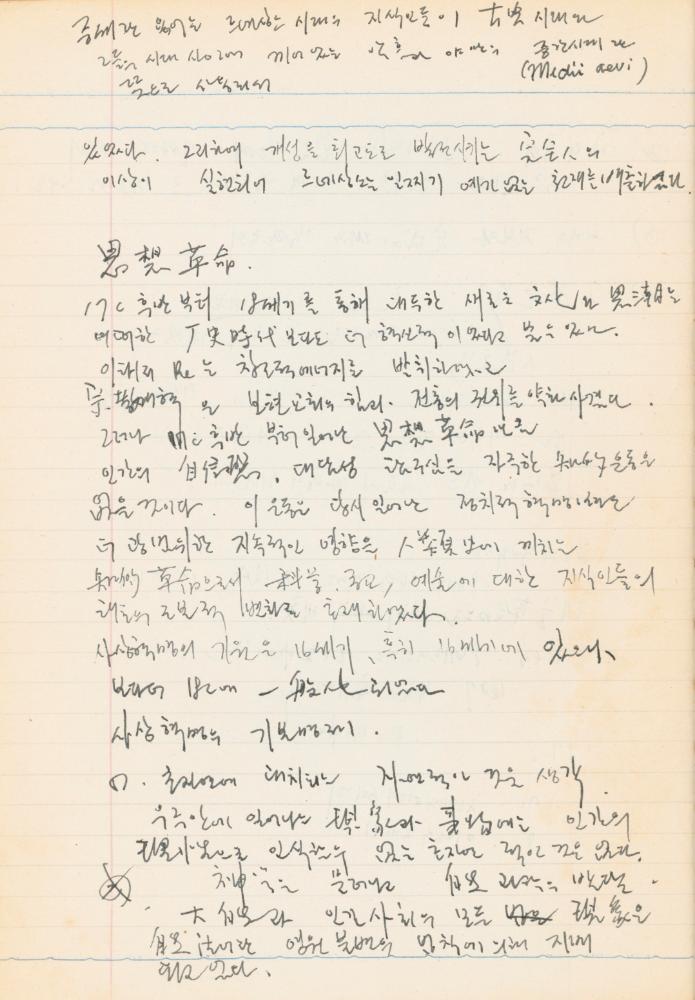 중세라는 용어는 르네상스 시대의 지식인들이 古典 시대와
그들의 시대 사이에 끼어 있는 야만의 중간시대 라
(Medii aevi)
뜻으로
있었다. 그리하여 개성을 최고도로 발전시키는 의
이상이 실현되어 르네상스는 일찌기 예가 없는 천재를 배출하였다.
思想革命.
17C 후반부터 18세기를 통해 대두한 새로운 思潮는
여하한 歷史時代 보다도 더 혁신적이었다고 볼 수 있다.
이태리 Re는 창조적 에너지를 발휘하였고
宗敎개혁은 보편교회의 힘과 전통의 권위를 약화시켰다.
그러나 후반부터 일어난 思想革命만큼
인간의 自信, 대담성 을 자극한 知的운동은
없을 것이다. 이 운동은 당시 일어난 정치적 혁명보다도
더 광범위한 지속적인 영향을 人類 끼치는
知的 革命으로서 科學, 종교, 예술에 대한 지식인들의
태도의 근본적 변화를 초래하였다.
사상혁명의 기원은 16세기, 특히 16세기에 있으나,
보다 더 18C에 一般化 되었다
사상혁명의 기본명제.
ㄱ. 초자연에 대치되는 자연적인 것을 생각
우주안에 일어나는 現象과 事物에는 인간의
인식할 수 없는 초자연적인 것은 없다.
神學은 물러나고 自然과학의 발달.
大自然과 인간사회의 모든 現象은
自然法이란 영원불변의 법칙에 의해 지배
되고 있다.